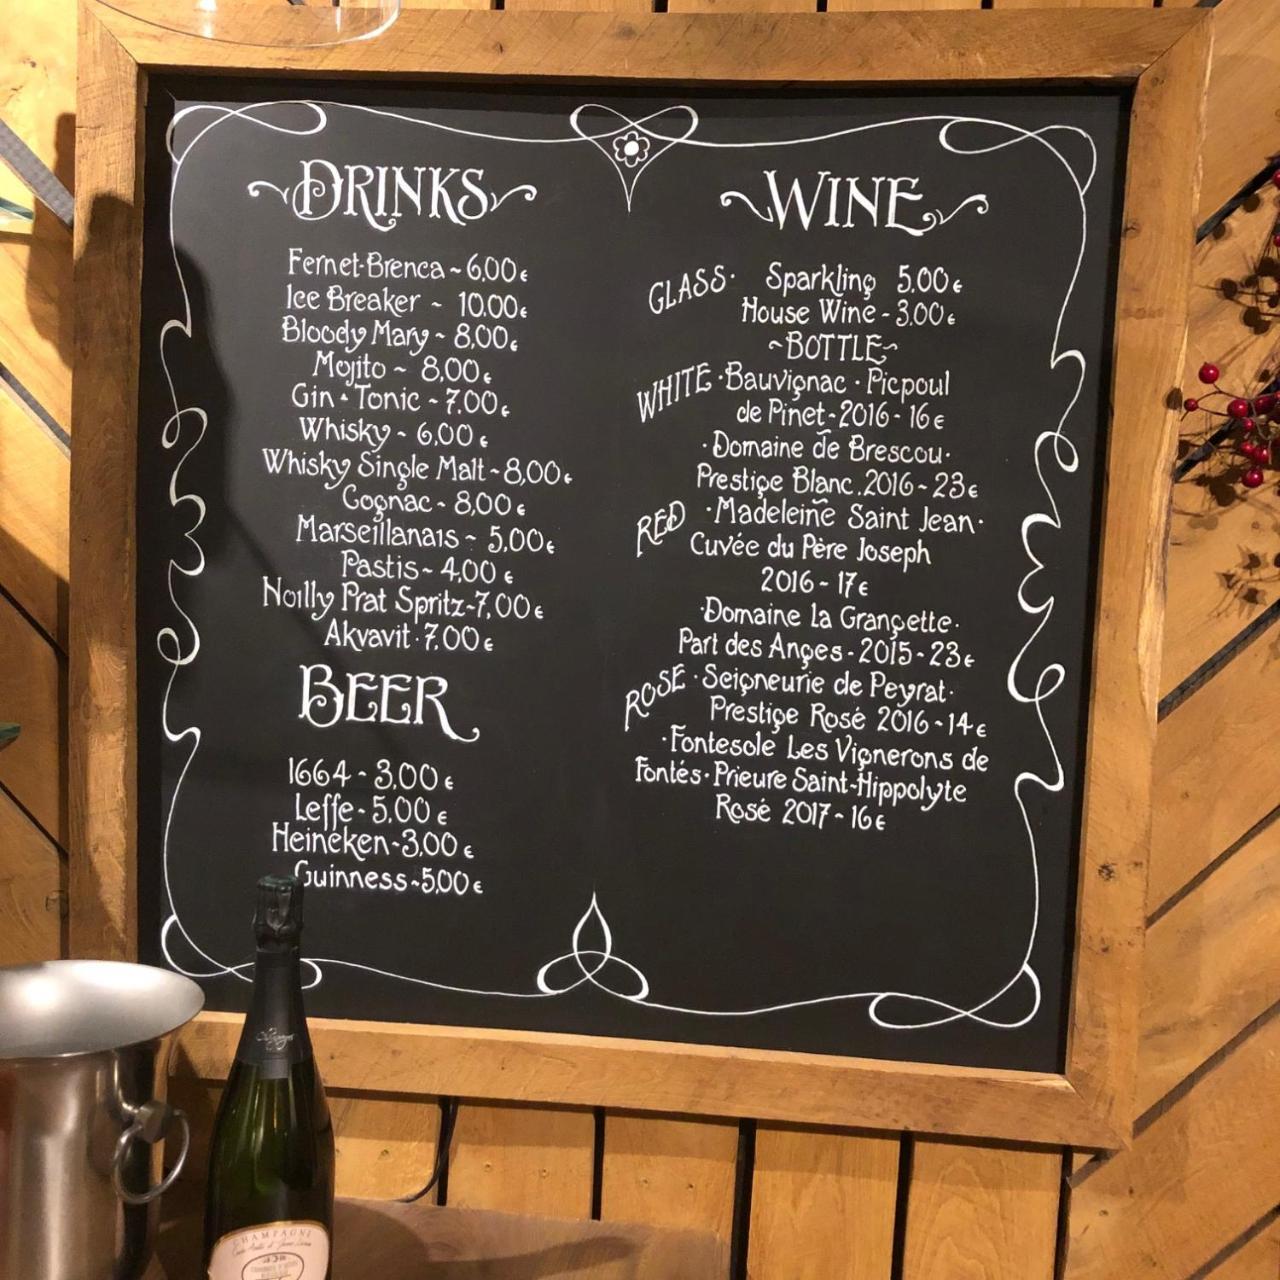 DRINKS
Fernet-Brenca ~ 6,00€
Ice Breaker ~ 10.00€
Bloody Mary ~ 8,00€
Mojito ~ 8,00€
Gin · Tonic ~ 7.00€
Whisky ~ 6,00€
Whisky Single Malt ~ 8,00€
Cognac ~ 8,00€
Marseillanais ~ 5,00€
Pastis ~ 4,00€
Noilly Prat Spritz ~ 7,00€
Akvavit · 7.00€
BEER
1664 - 3,00€
Leffe - 5,00€
Heineken - 3,00€
Guinness ~ 5,00€
WINE
GLASS · Sparkling 5,00€
House Wine - 3,00€
~BOTTLE~
WHITE · Bauvignac · Picpoul
de Pinet - 2016 - 16€
· Domaine de Brescou ·
Prestige Blanc . 2016 - 23€
RED · Madeleine Saint Jean ·
Cuvée du Père Joseph
2016 - 17€
· Domaine La Grangette ·
Part des Anges - 2015 - 23€
ROSE · Seigneurie de Peyrat ·
Prestige Rosé 2016 - 14€
· Fontesole Les Vignerons de
Fontés · Prieure Saint-Hippolyte
Rosé 2017 - 16€
CHAMPAGNE